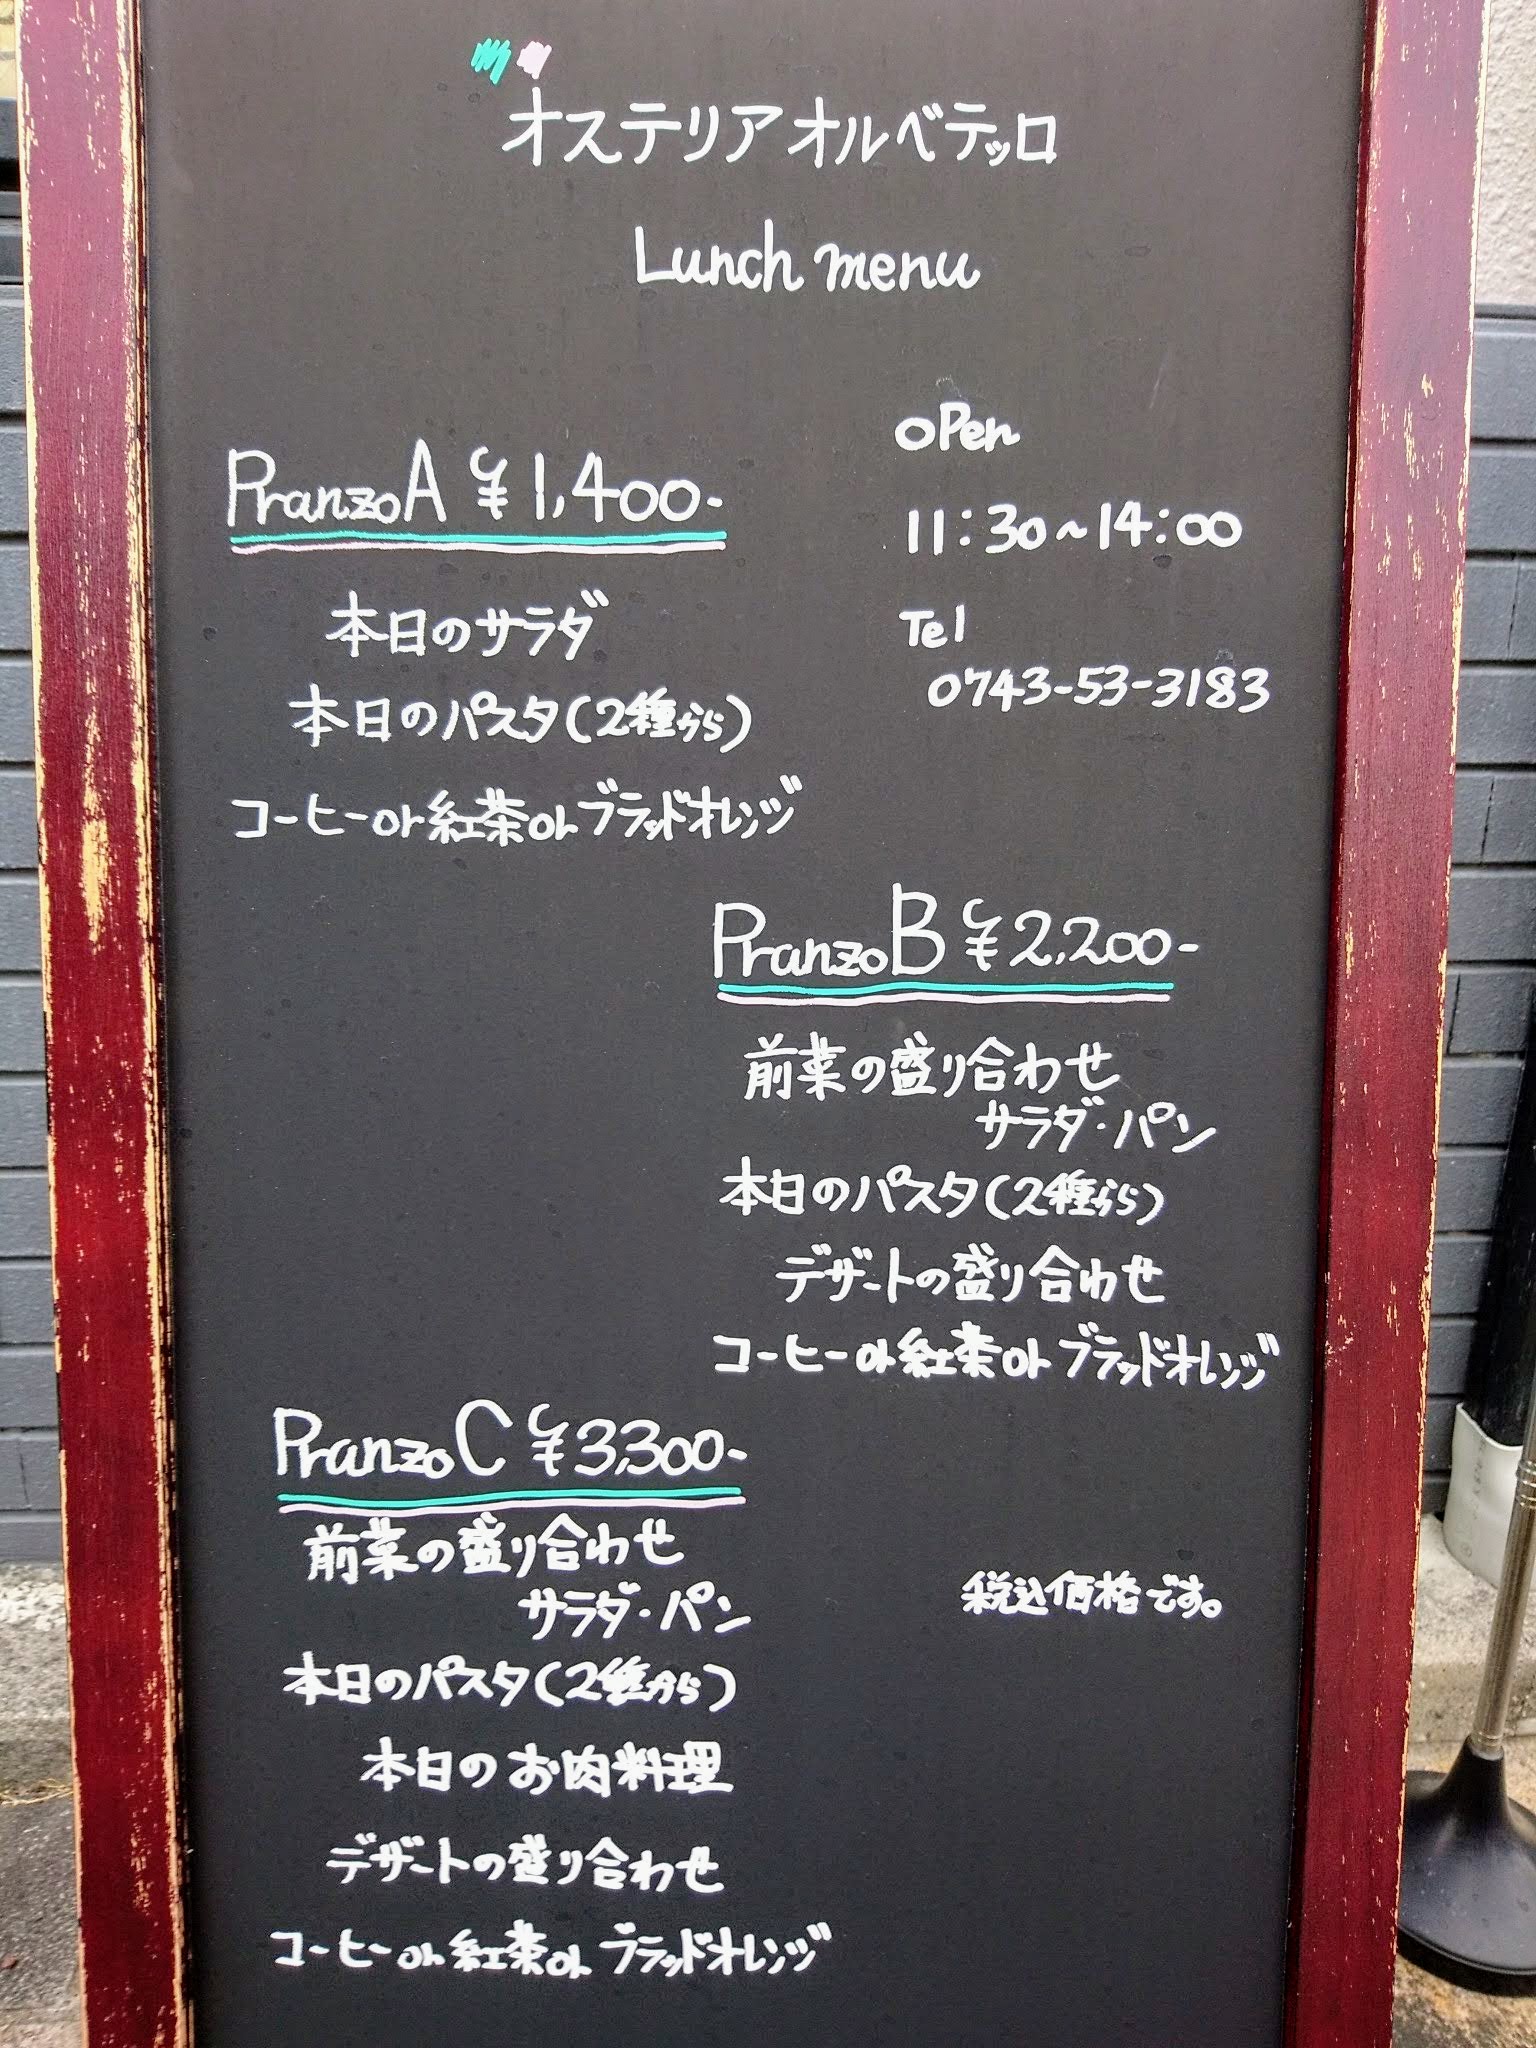 オステリアオルベテッロ
Lunch menu
Open
11:30~14:00
Tel
0743-53-3183
Pranzo A ¥1,400-
本日のサラダ
本日のパスタ(2種から)
コーヒーor紅茶orブラッドオレンジ
Pranzo B ¥2,200-
前菜の盛り合わせ
サラダ・パン
本日のパスタ(2種から)
デザートの盛り合わせ
コーヒーor紅茶orブラッドオレンジ
Pranzo C ¥3,300-
前菜の盛り合わせ
サラダ・パン
本日のパスタ(2種から)
本日のお肉料理
デザートの盛り合わせ
コーヒーor紅茶orブラッドオレンジ
税込価格です。